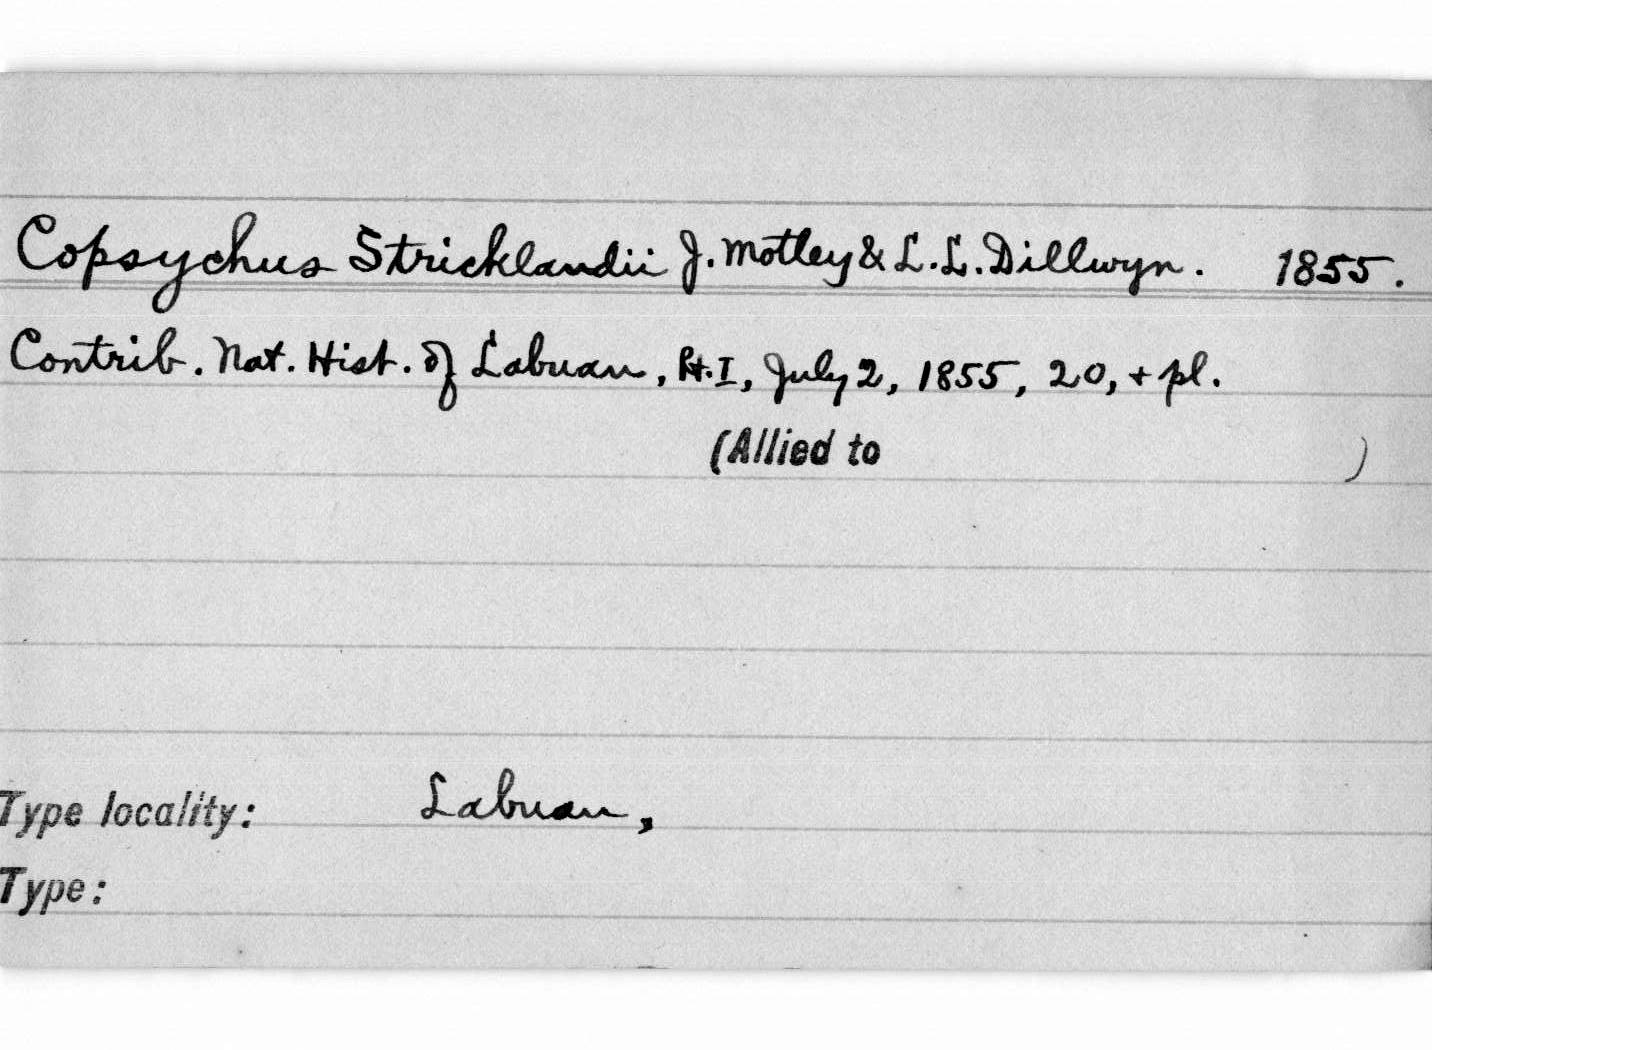 Copsychus Stricklandii J. Motley & L. L. Dillwyn. 1855.
Contrib. Nat. Hist. of Labuan, Pt. I, July 2, 1855, 20, + pl.
(Allied to )
Type locality: Labuan,
Type: